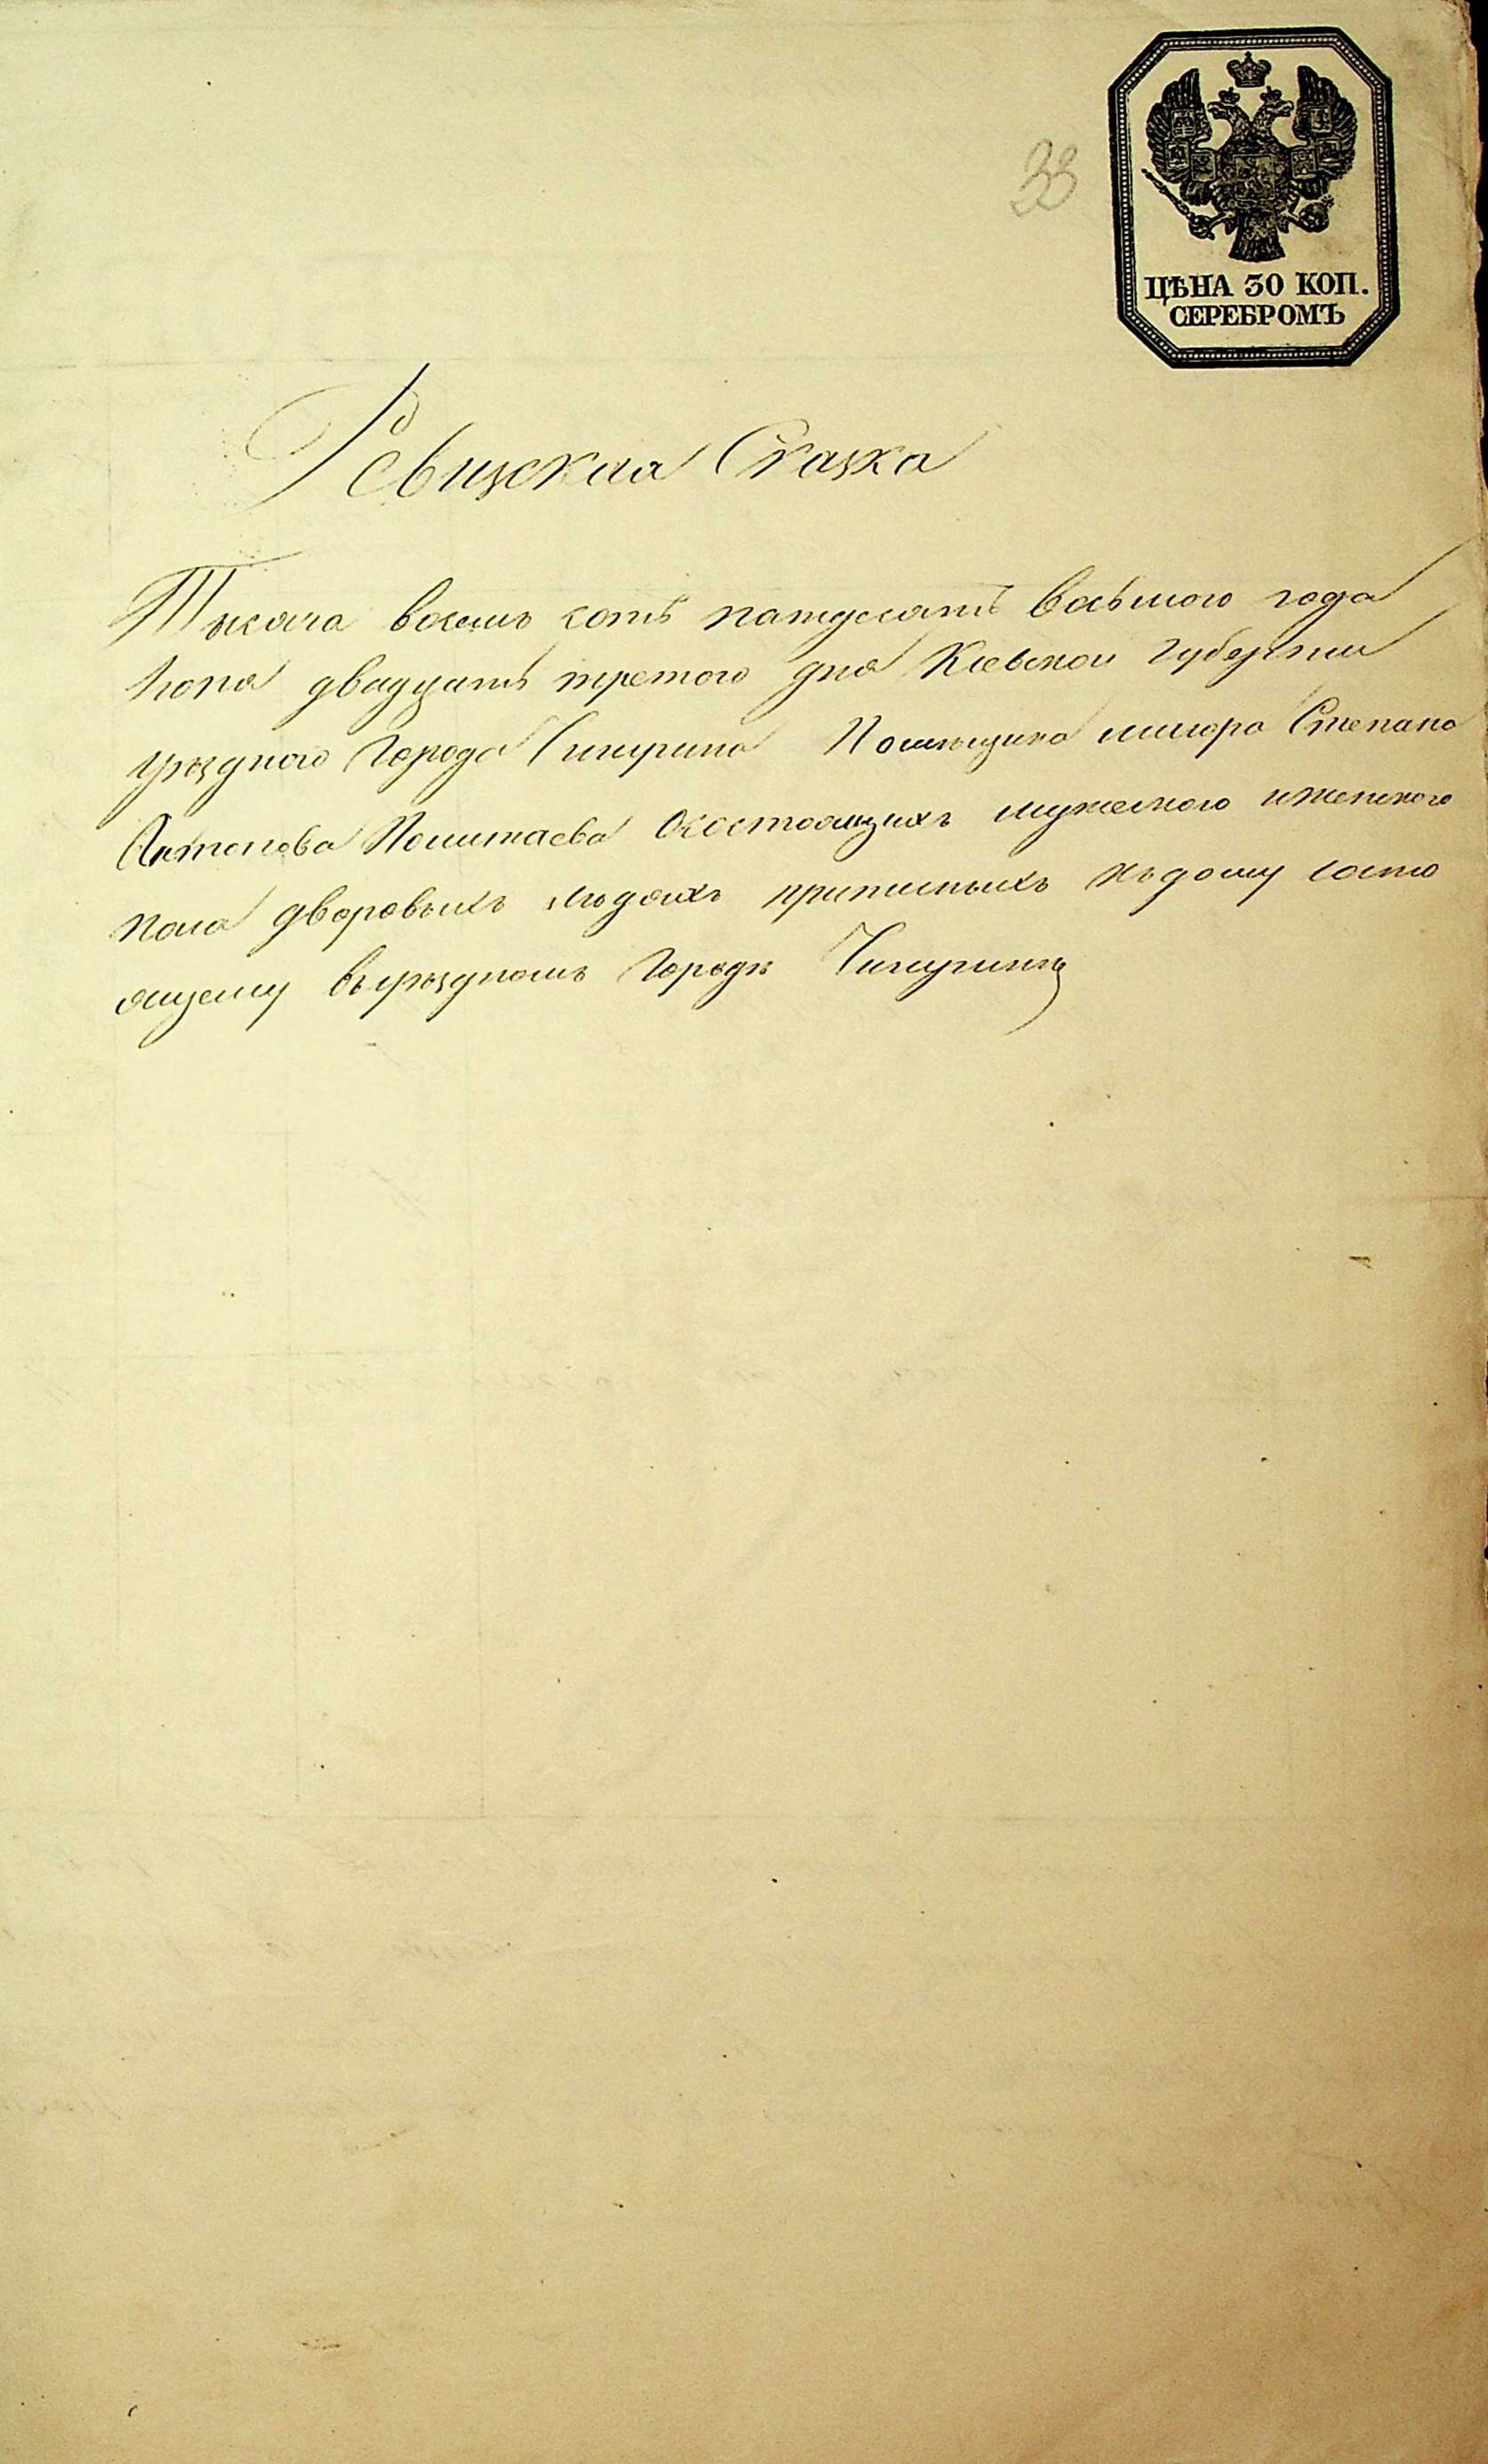 33
ЦѢНА 30 КОП.
СЕРЕБРОМЪ
Ревизская Сказка
Тысяча восемь сотъ пятдесятъ восьмого года
Іюня двадцать третого дня Кіевской губерніи
уѣзднаго Города Чигирина Помѣщика маіора Степана
Антонова Политаева Осостоящихъ мужеского иженского
пола дворовыхъ людяхъ приписныхъ къдому состо
ящему въуѣздномъ Городѣ Чигиринѣ